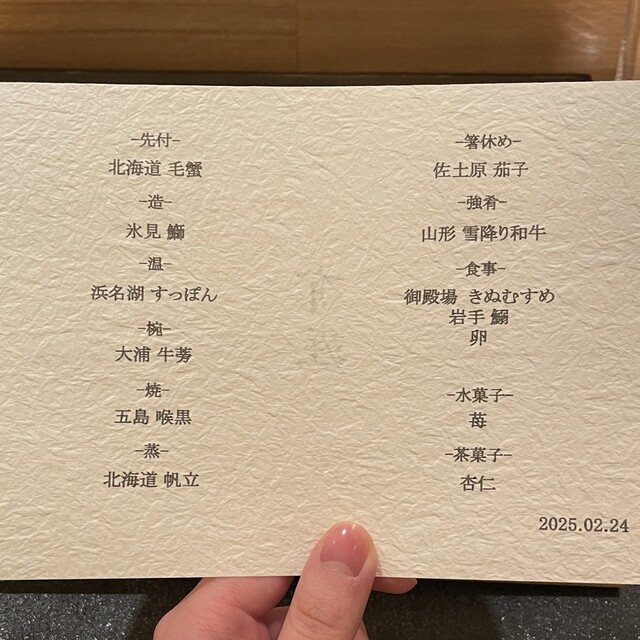 -先付-
北海道 毛蟹
-造-
氷見 鰤
-温-
浜名湖 すっぽん
-椀-
大浦 牛蒡
-焼-
五島 喉黒
-蒸-
北海道 帆立
-箸休め-
佐土原 茄子
-強肴-
山形 雪降り和牛
-食事-
御殿場 きぬむすめ
岩手 鰯
卵
-水菓子-
苺
-茶菓子-
杏仁
2025.02.24